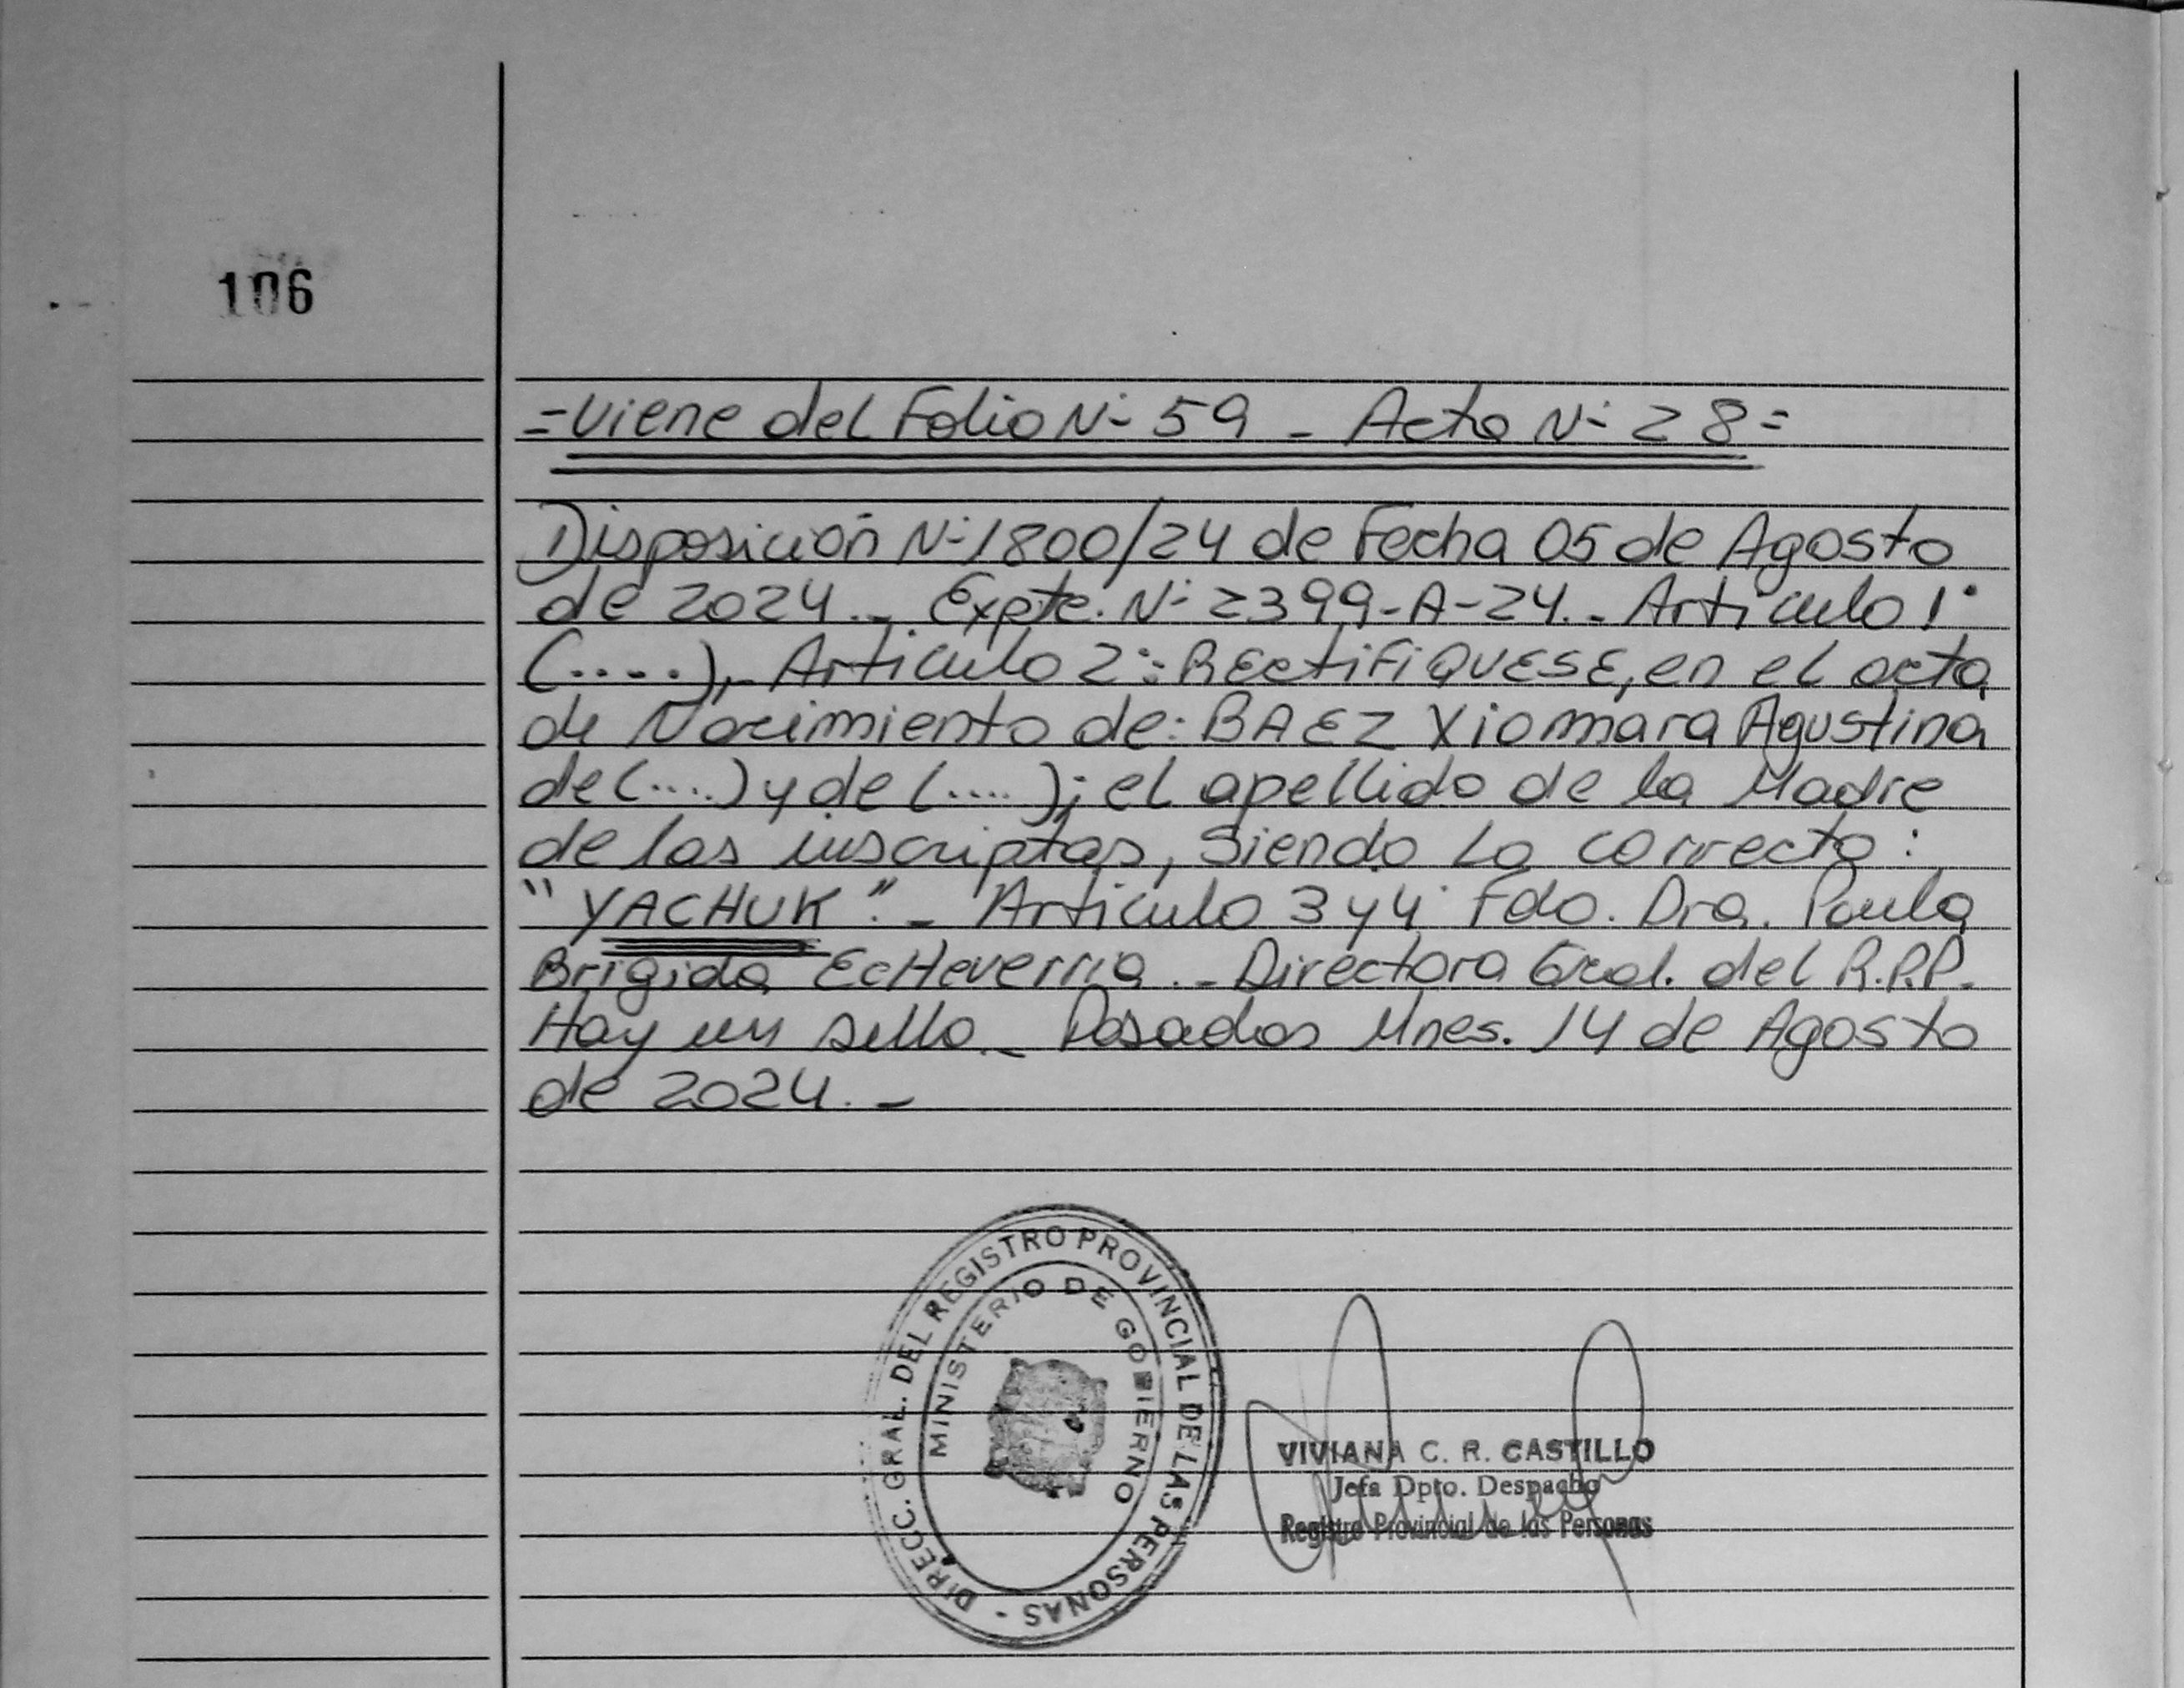 106
=Viene del Folio Nº 59 - Acta Nº 28=
Disposición Nº 1800/24 de Fecha 05 de Agosto
de 2024.- Expte. Nº 2399-A-24.- Artículo 1º
(.....),- Artículo 2º: RECTIFIQUESE, en el acta
de Nacimiento de: BAEZ Xiomara Agustina
de (....) y de (....); el apellido de la Madre
de las inscriptas, Siendo Lo correcto:
"YACHUK".- Artículo 3 y 4º Fdo. Dra. Paula
Brigida EcHeverria.- Directora Gral. del R.P.P.
Hay un sello.- Posadas Mnes. 14 de Agosto
de 2024.-
DIRECC. GRAL. DEL REGISTRO PROVINCIAL DE LAS PERSONAS -
MINISTERIO DE GOBIERNO
VIVIANA C. R. CASTILLO
Jefa Dpto. Despacho
Registro Provincial de las Personas